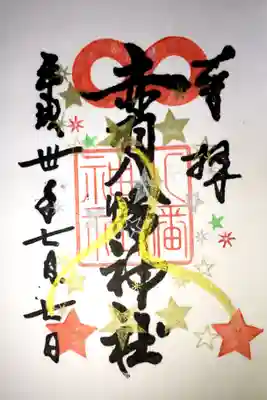 奉拝
赤羽八幡神社
八幡
神社
平成丗年七月七日